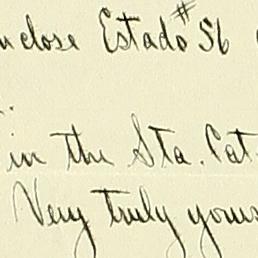 nclose Estado #56
in the Sta. Cat.
Very truly yours